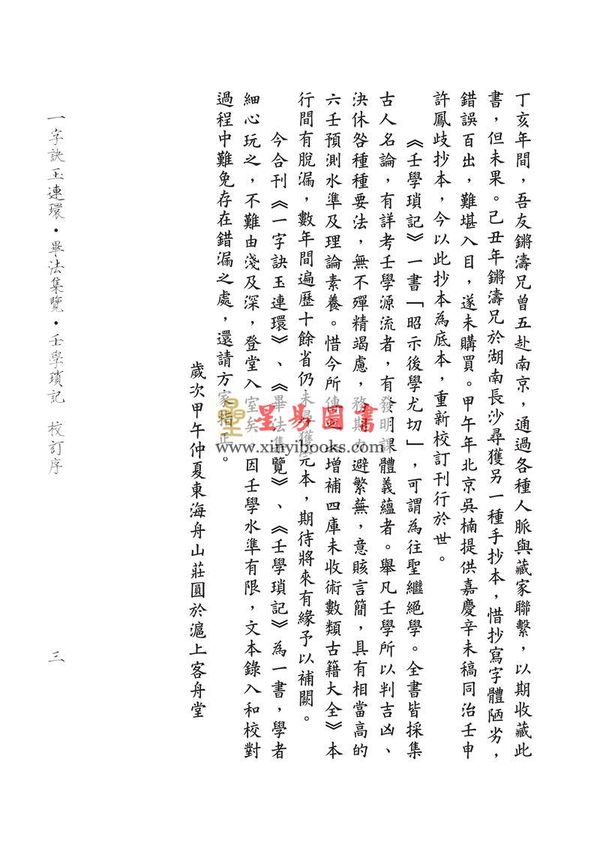 丁亥年間，吾友鏘濤兄曾五赴南京，通過各種人脈與藏家聯繫，以期收藏此
書，但未果。己丑年鏘濤兄於湖南長沙尋獲另一種手抄本，惜抄寫字體陋劣，
錯誤百出，難堪入目，遂未購買。甲午年北京吳楠提供嘉慶辛未稿同治壬申
許鳳歧抄本，今以此抄本為底本，重新校訂刊行於世。
《壬學瑣記》一書「昭示後學尤切」，可謂為往聖繼絕學。全書皆採集
古人名論，有詳考壬學源流者，有發明課體義蘊者。舉凡壬學所以判吉凶、
決休咎種種要法，無不殫精竭慮，務期力避繁蕪，意賅言簡，具有相當高的
六壬預測水準及理論素養。惜今所傳《增補四庫未收術數類古籍大全》本
行間有脫漏，數年間遍歷十餘省仍未尋獲元本，期待將來有緣予以補闕。
今合刊《一字訣玉連環》、《畢法集覽》、《壬學瑣記》為一書，學者
細心玩之，不難由淺及深，登堂入室矣。因壬學水準有限，文本錄入和校對
過程中難免存在錯漏之處，還請方家指正。
歲次甲午仲夏東海舟山莊圓於滬上客舟堂
一字訣玉連環・畢法集覽・壬學瑣記 校訂序
三
星易圖書
www.xinyibooks.com